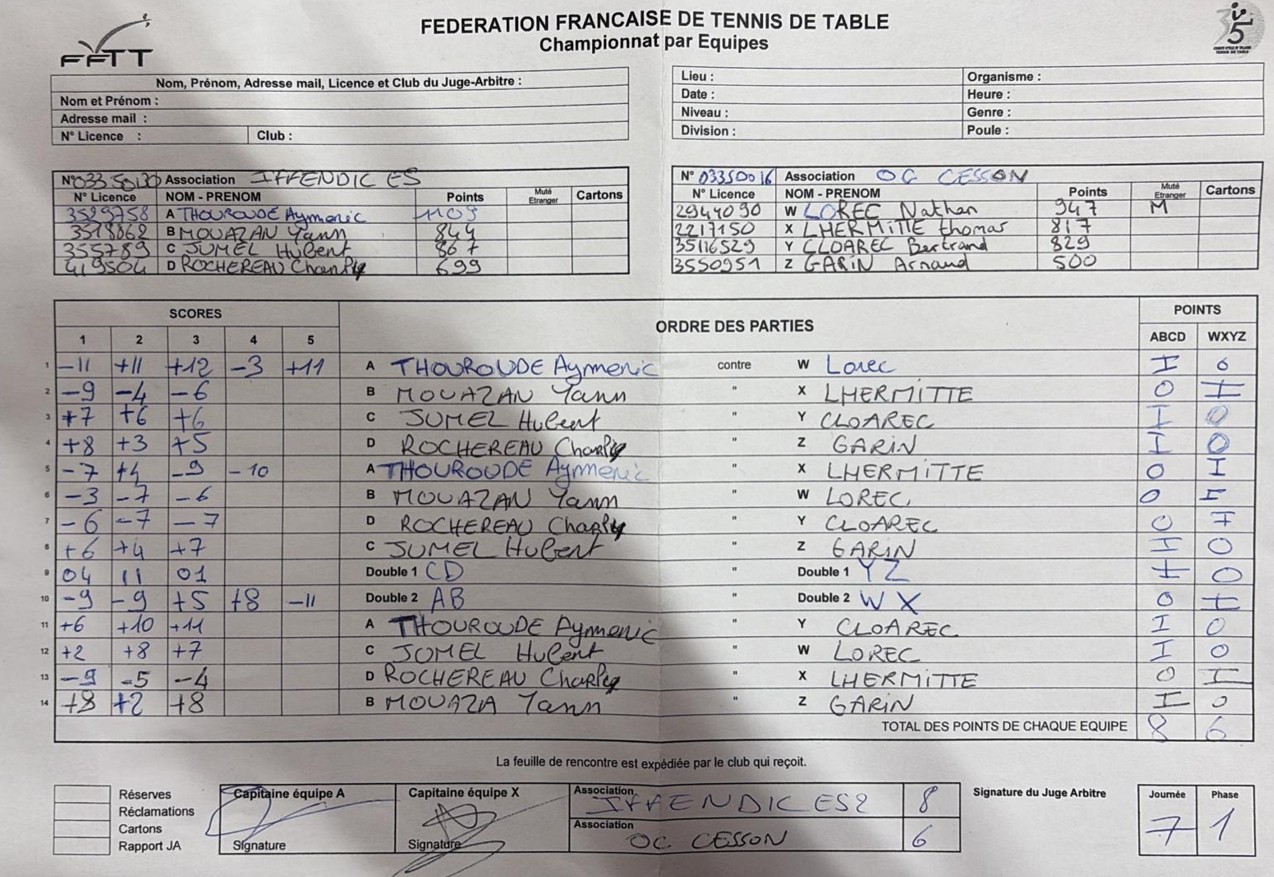 FFTT
FEDERATION FRANCAISE DE TENNIS DE TABLE
Championnat par Equipes
35
Nom, Prénom, Adresse mail, Licence et Club du Juge-Arbitre :
Nom et Prénom :
Adresse mail :
N° Licence : Club :
Lieu : Organisme :
Date : Heure :
Niveau : Genre :
Division : Poule :
N° 03350130 Association IFFENDIC ES
N° Licence NOM - PRENOM Points Muté Etranger Cartons
3529758 A THOUROUDE Aymeric 1109
3518862 B MOUAZAN Yann 844
355789 C JUMEL Hubert 867
419504 D ROCHEREAU 699
N° 03350016 Association OC CESSON
N° Licence NOM - PRENOM Points Muté Etranger Cartons
2944090 W LOREC Nathan 947 M
2217150 X LHERMITTE thomas 817
35116529 Y CLOAREC Bertrand 829
3550951 Z GARIN Arnaud 500
SCORES ORDRE DES PARTIES POINTS
1 2 3 4 5 ABCD WXYZ
1 -11 +11 +12 -3 +11 A THOUROUDE Aymeric contre W Lorec I 0
2 -9 -4 -6 B MOUAZAN Yann " X LHERMITTE 0 I
3 +7 +6 +6 C JUMEL Hubert " Y CLOAREC I 0
4 +8 +3 +5 D ROCHEREAU " Z GARIN I 0
5 -7 +4 -9 -10 A THOUROUDE Aymeric " X LHERMITTE 0 I
6 -3 -7 -6 B MOUAZAN Yann " W LOREC 0 I
7 -6 -7 -7 D ROCHEREAU " Y CLOAREC 0 I
8 +6 +4 +7 C JUMEL Hubert " Z GARIN I 0
9 04 11 01 Double 1 CD " Double 1 YZ I 0
10 -9 -9 +5 +8 -11 Double 2 AB " Double 2 WX 0 I
11 +6 +10 +11 A THOUROUDE Aymeric " Y CLOAREC I 0
12 +2 +8 +7 C JUMEL Hubert " W LOREC I 0
13 -9 -5 -4 D ROCHEREAU " X LHERMITTE 0 I
14 +8 +2 +8 B MOUAZA Yann " Z GARIN I 0
TOTAL DES POINTS DE CHAQUE EQUIPE 8 6
La feuille de rencontre est expédiée par le club qui reçoit.
Réserves
Réclamations
Cartons
Rapport JA
Capitaine équipe A
Signature
Capitaine équipe X
Signature
Association IFFENDIC ES2 8
Association OC CESSON 6
Signature du Juge Arbitre
Journée Phase
7 1